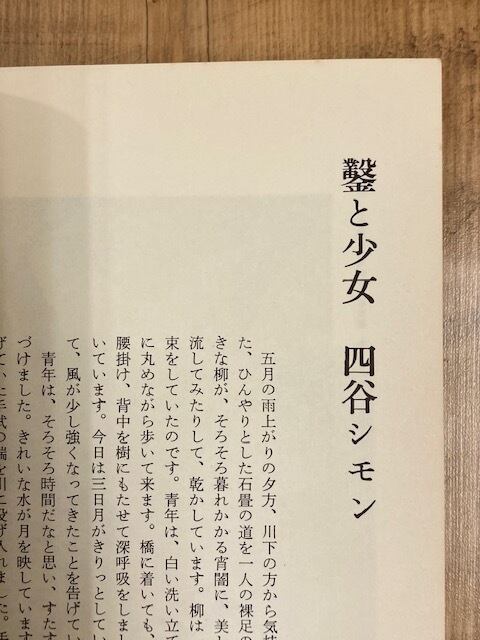 鑿と少女　四谷シモン
五月の雨上がりの夕方、川下の方から気
た、ひんやりとした石畳の道を一人の裸足の
きな柳が、そろそろ暮れかかる宵闇に、美し
流してみたりして、乾かしています。柳は
束をしていたのです。青年は、白い洗い立て
に丸めながら歩いて来ます。橋に着いても、
腰掛け、背中を樹にもたせて深呼吸をしまし
いています。今日は三日月がきりっとしてい
て、風が少し強くなってきたことを告げてい
青年は、そろそろ時間だなと思い、すたす
づけました。きれいな水が月を映しています
端を川に投げ入れました。